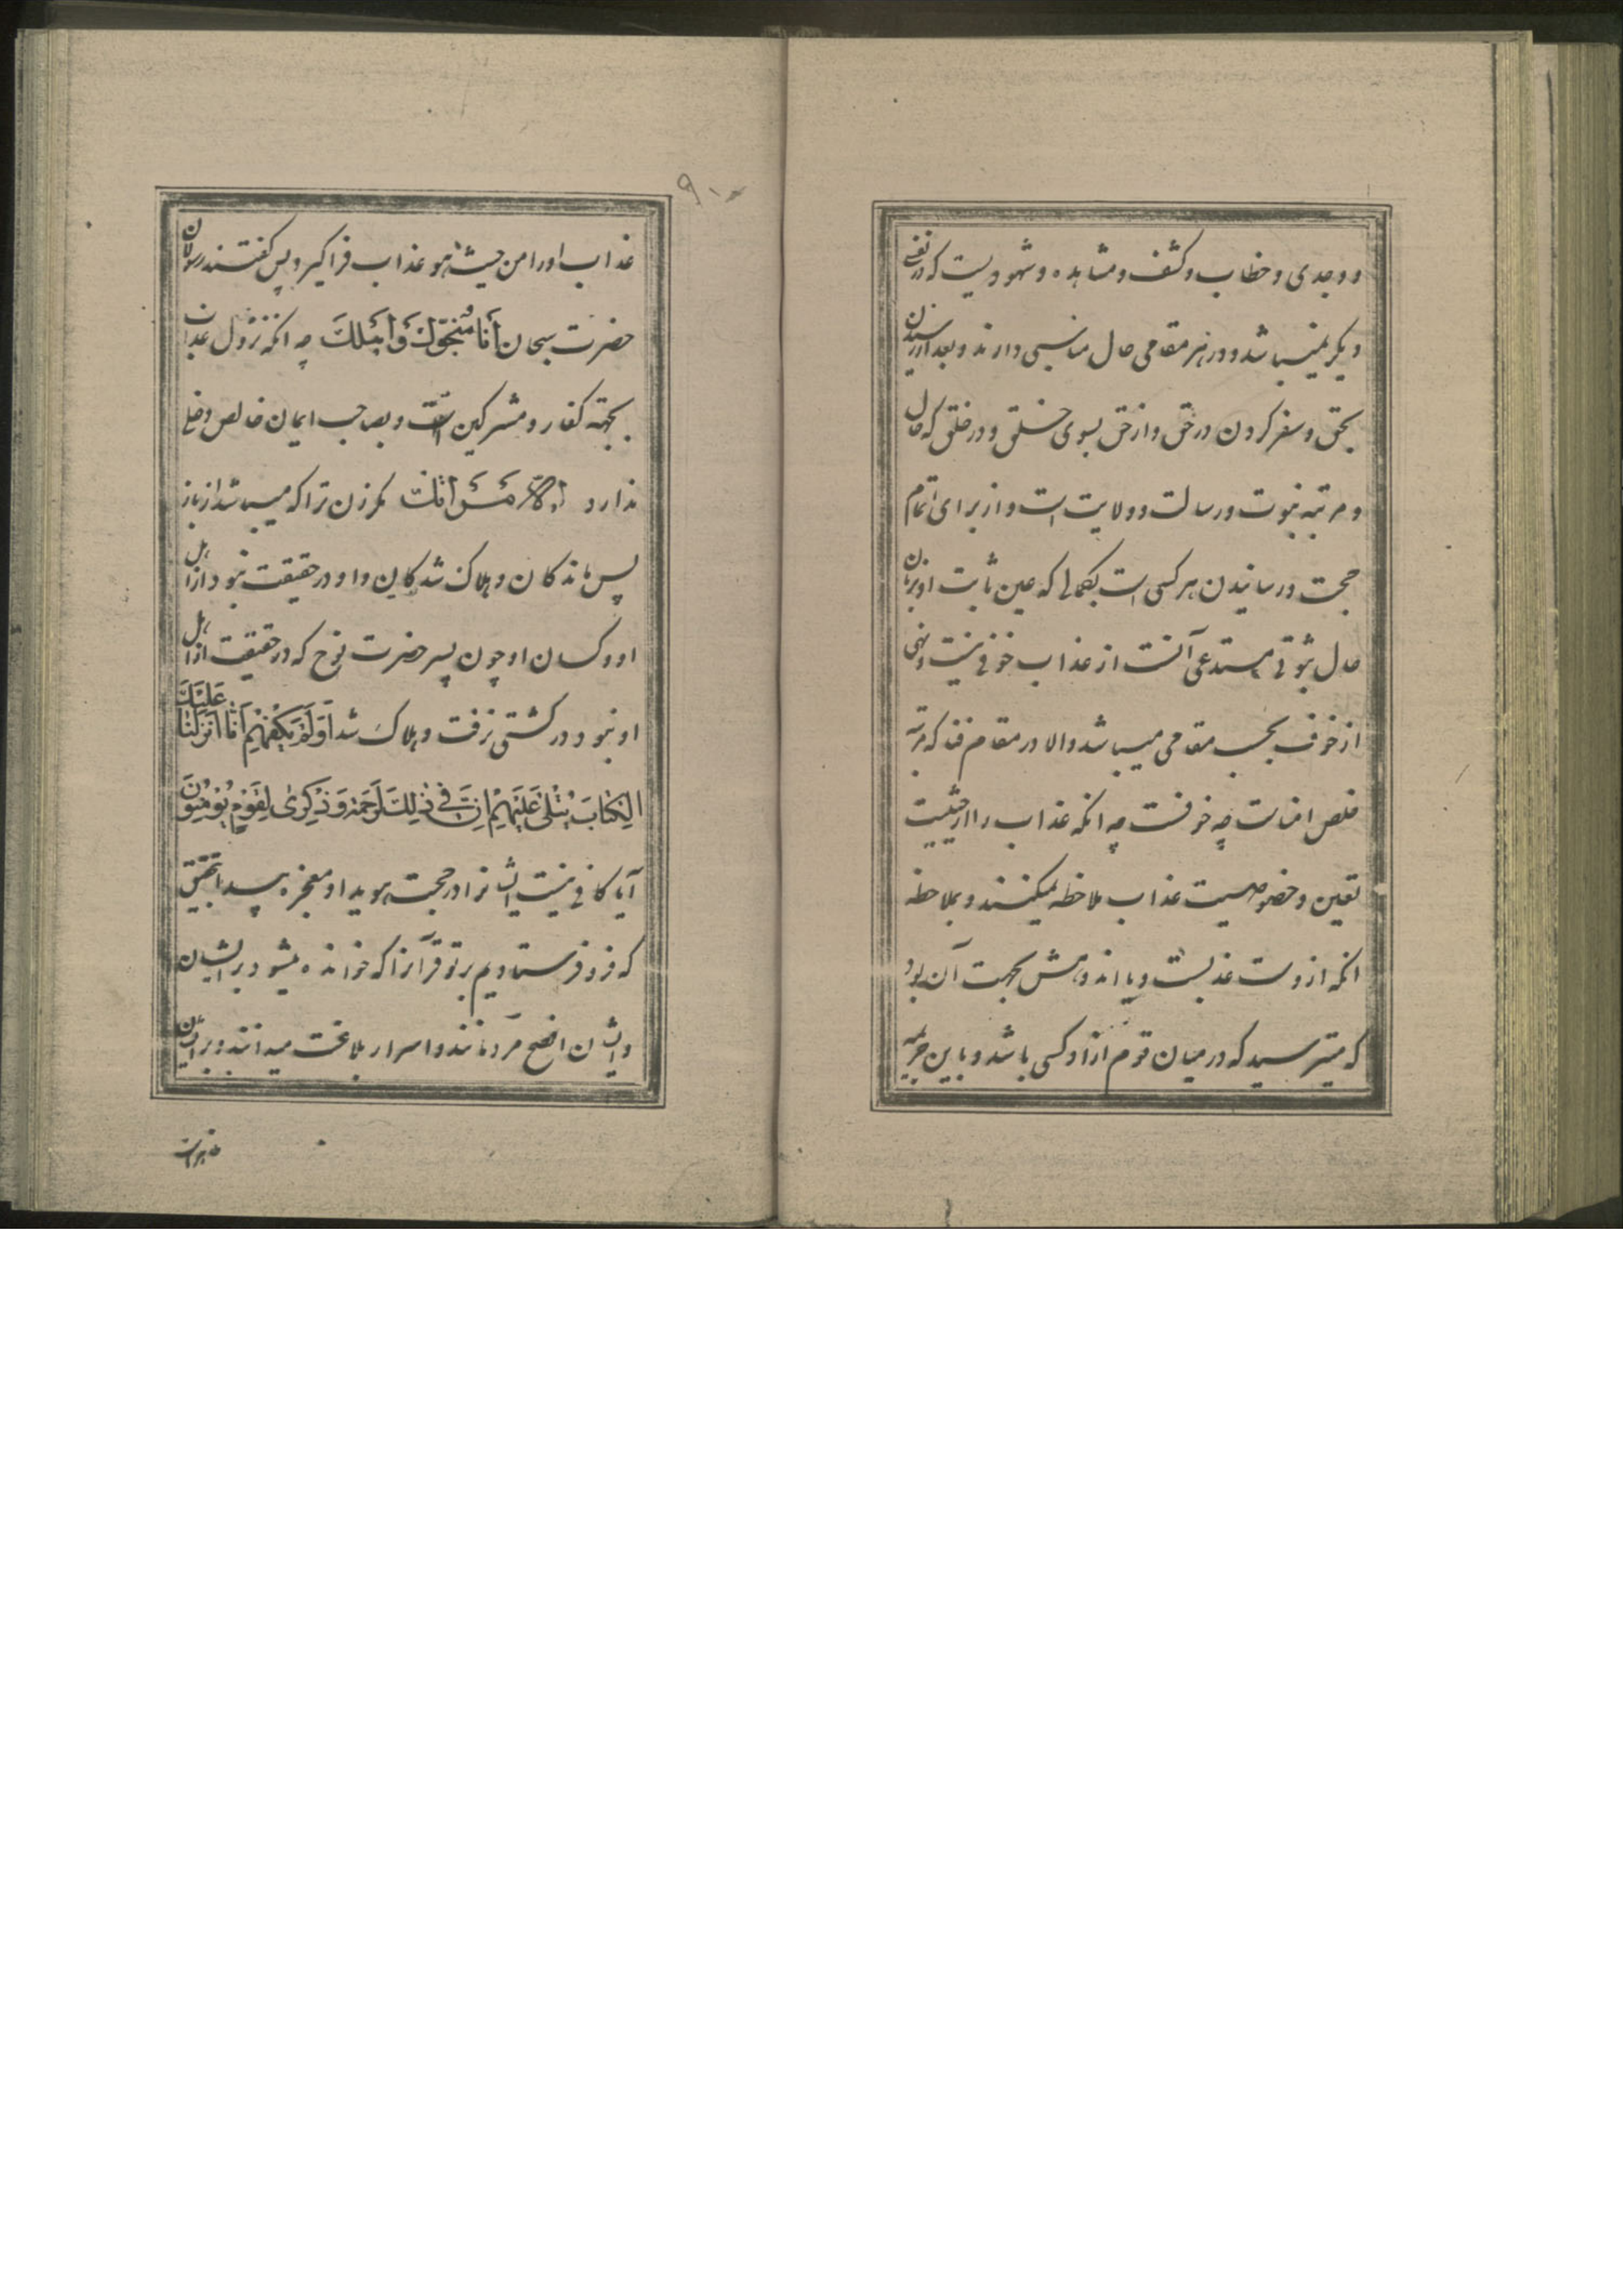 و وجدی و خطاب و کشف و مشاهده و شهودیست که در نفسی
دیگر نمیباشد و در هر مقامی حال مناسبی دارند و بعد از رسیدن
بحق و سفر کردن در حق و از حق بسوی خلق و در خلق که حال
و مرتبه نبوت و رسالت و ولایت است و از برای اتمام
حجت و رسانیدن هر کسی است بکمالی که عین ثابت او بزبان
حال ثبوتی مستدعی آنست از عذاب خوفی نیست و نهی
از خوف بحسب مقامی میباشد والا در مقام فنا که مرتبه
خلص است چه خوفست چه انکه عذاب را از حیثیت
تعین و خصوصیت عذاب ملاحظه نمیکنند و بملاحظه
انکه از دوست عذبست و یا اندوهش بجهت آن بود
که میترسید که در میان قوم از او کسی باشد و باین
۹۰۰
عذاب او را من حیث هو عذاب فراگیرد پس گفتند رسولان
حضرت سبحان انا منجوک و اهلک چه انکه نزول عذاب
بجهة کفار و مشرکین است و بصاحب ایمان خالص دخلی
ندارد الا امراتک مگر زن ترا که میباشد از باز
پس ماندکان و هلاک شدکان و او در حقیقت نبود از اهل
او و کسان او چون پسر حضرت نوح که در حقیقت از اهل
او نبود و در کشتی نرفت و هلاک شد اَوَلَمْ یَکْفِهِمْ اَنّا اَنْزَلْنا عَلَیْکَ
الْکِتابَ یُتْلی عَلَیْهِمْ اِنَّ فی ذلِکَ لَرَحْمَةً وَ ذِکْری لِقَوْمٍ یُؤْمِنُونَ
آیا کافی نیست ایشانرا در حجت هویدا و معجزه پیدا بتحقیق
که فرو فرستادیم بر تو قرآنرا که خوانده میشود بر ایشان
و ایشان افصح مردمانند و اسرار بلاغت میدانند و بر ایشان